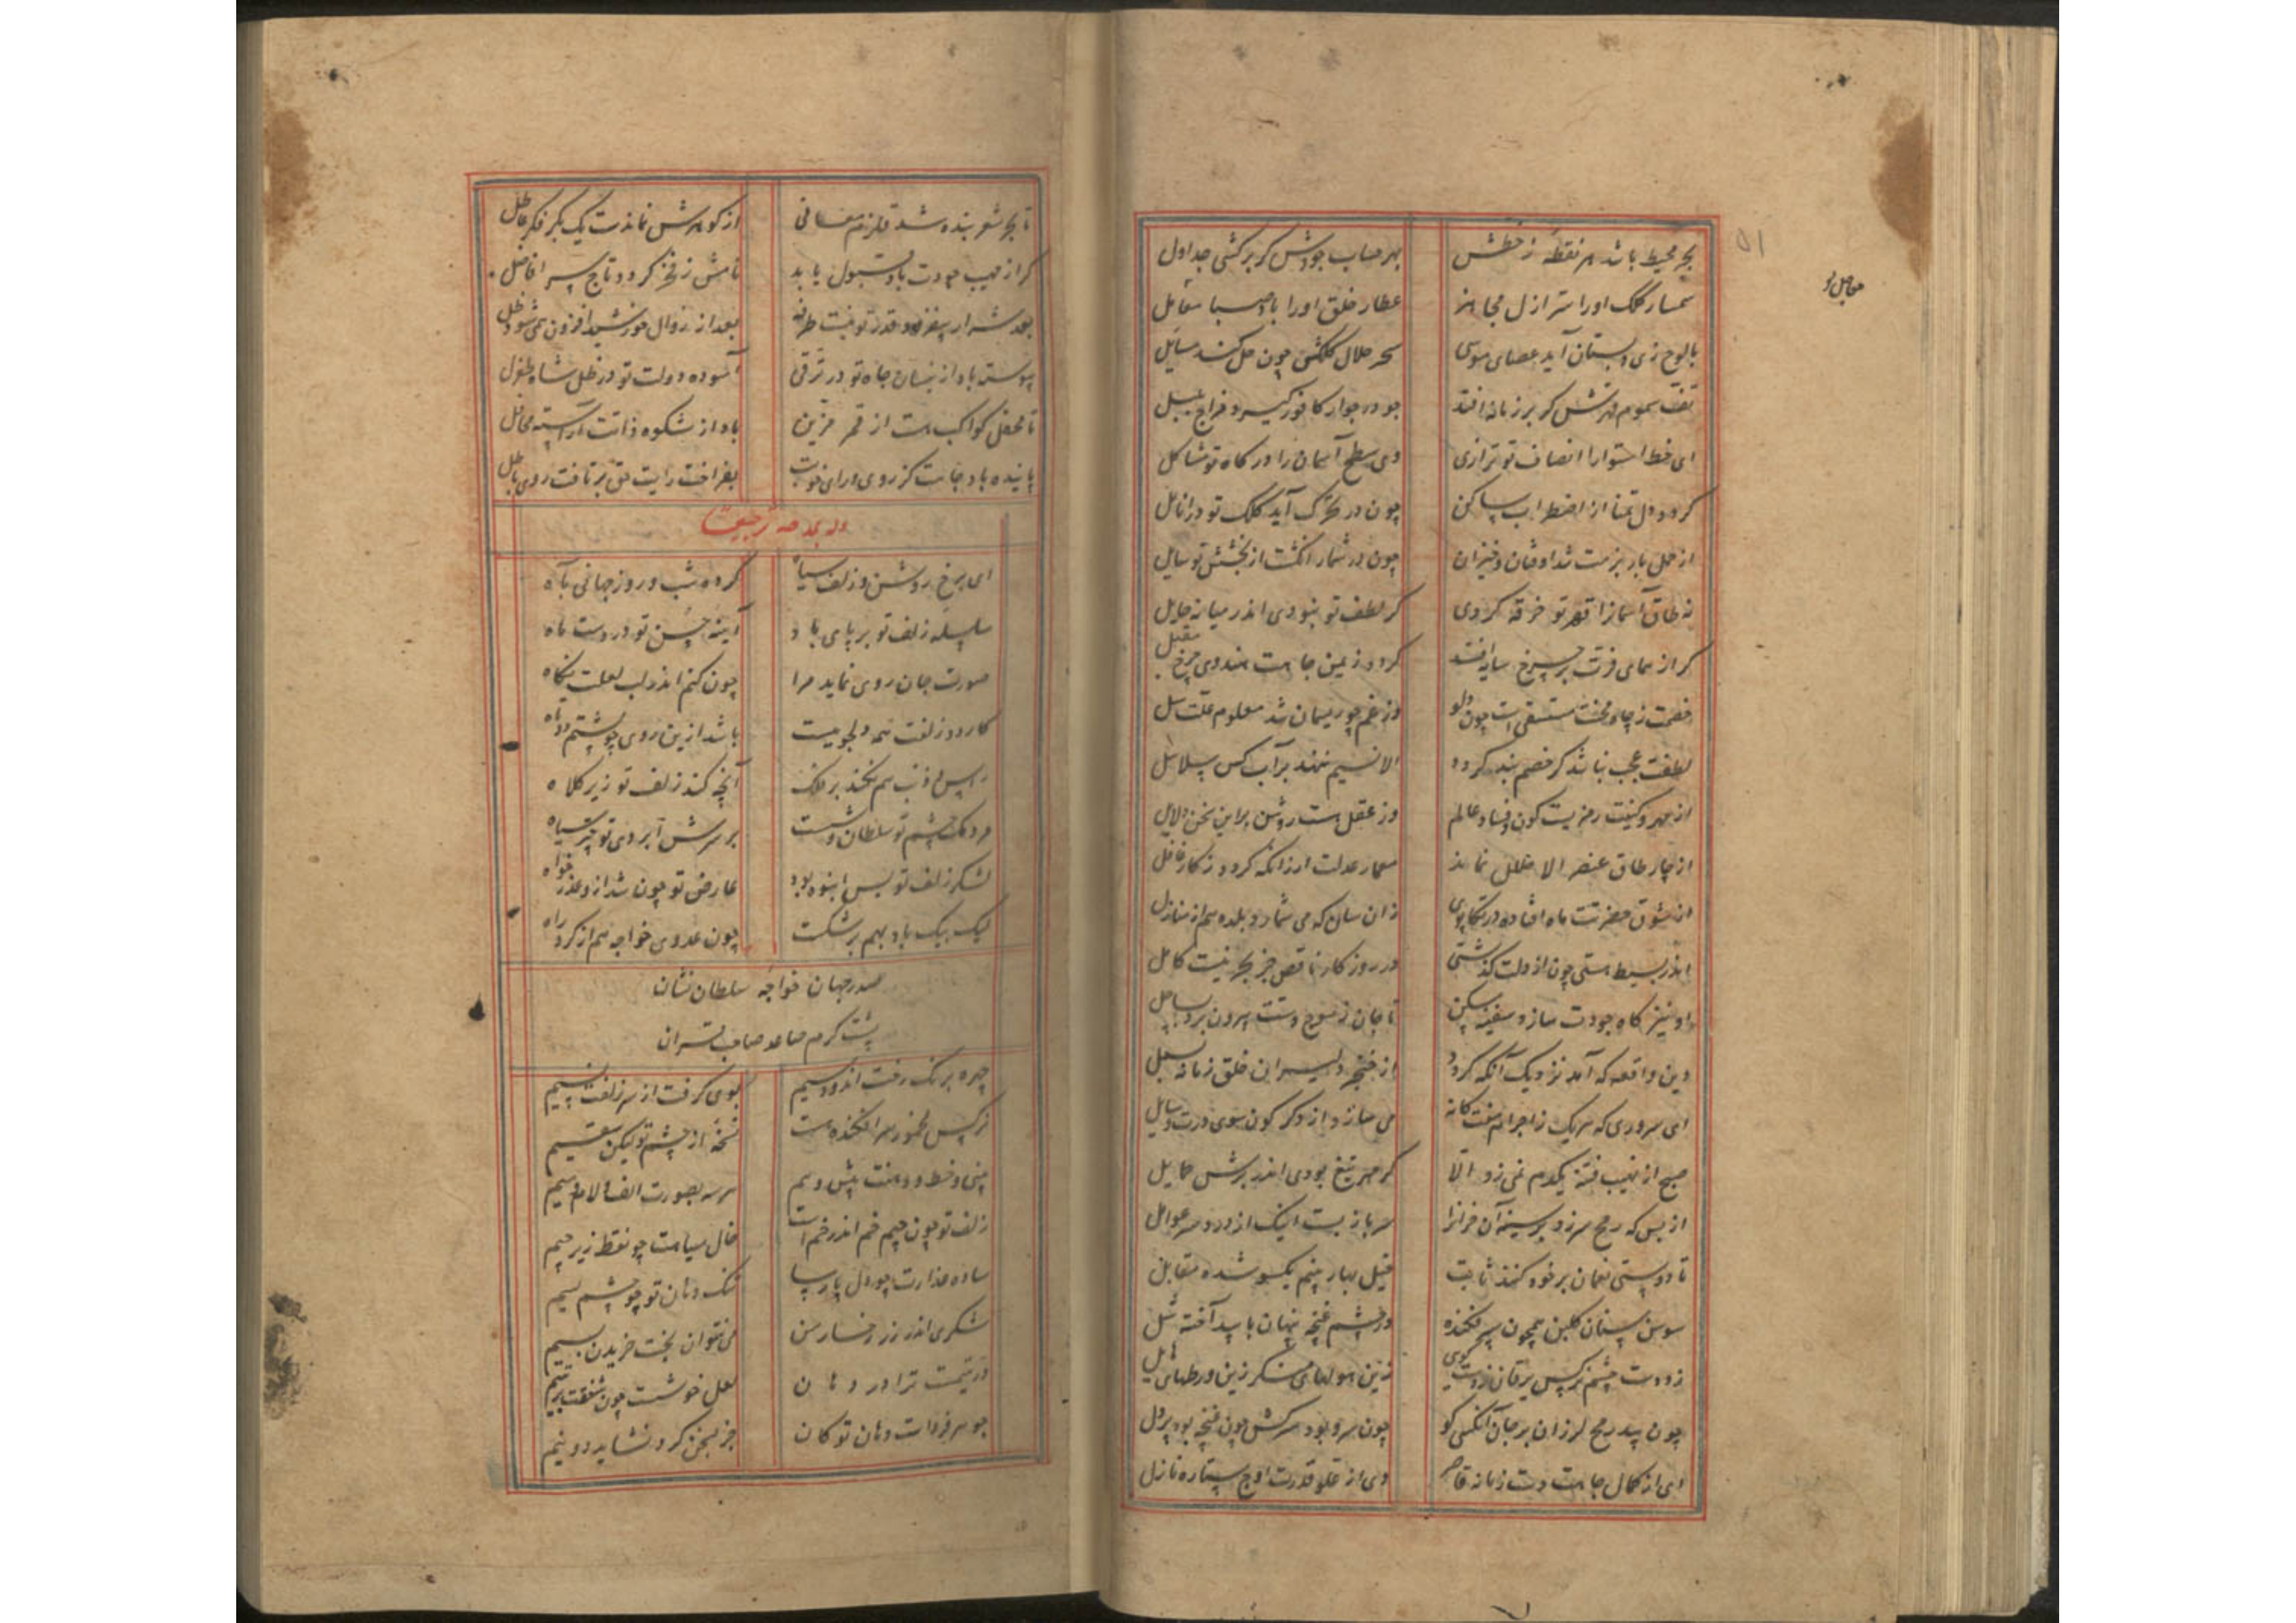 بحر محیط باشد هر نقطه ز خطش بهر حساب جودش کر برکشی جداول
سمسار کلک او را ستر ازل مجاهز عطار خلق او را باد صبا مقابل
با لوح زی دبستان آید عصای موسی سحر حلال کلکش چون حل کند مسایل
تف سموم قهرش کر بر زمانه افتد
ای خط استوا را انصاف تو ترازی وی سطح آسمان را درکاه تو مشاکل
کردد دل تمنا از اضطراب ساکن چون در تحرک آید کلک تو در انامل
از حمل بار بزمت شد اوفتان و خیزان چون در شمار انکشت از بخشش تو سایل
نه طاق آسمانرا قهر تو خرقه کردی کر لطف تو نبودی اندر میانه حایل
کر از همای فرت بر چرخ سایه افتد کردد زیمن جاهت هندوی چرخ مقبل
خصمت ز چاه محنت مستسقی است چون دلو وز غم چو ریسمان شد معلوم علت سل
لطفت عجب نباشد کر خصم بند کردد الا نسیم ننهد بر آب کس سلاسل
از مهر و کینت رمزیست کون و فساد عالم وز عقل هست روشن بر این سخن دلایل
از چار طاق عنصر الا طلل نماند معمار عدلت ار زانکه کردد ز کار غافل
از شوق حضرتت ماه افتاده در تکاپوی زان سان که می شمارد بلده هم از منازل
اندر بسیط هستی چون از دلت کذشتی در روزکار ناقص جز بحر نیست کامل
او نیز کاه جودت سازد سفینه مسکن تا جان ز موج دستت بیرون برد بساحل
وین واقعه که آمد نزدیک آنکه کردد از خنجر دلیران خلق زمانه بسمل
ای سروری که هریک ز اجرام هفت کانه می سازد از دکر کون سوی درت وسایل
صبح از نهیب فتنه یکدم نمی زد الا کر مهر تیغ بودی اندر برش حمایل
از بس که رمح سر زد بر سینه آن فرانرا سر باز بست اینک از درد سر عوامل
تا دوستی نعمان بر خود کنند ثابت خیل بهار بینم یکسو شده مقابل
سوسن سنان کلبن همچون سپر فکنده در چشم غنچه پنهان با بید آخته شل
چون بید رمح لرزان بر جان آنکسی کو چون سرو بود سرکش چون غنچه بود پر دل
وی از کمال جاهت دست زمانه قاصر وی از علو قدرت اوج ستاره نازل
تا بحر شعر بنده شد قلزم معانی از کوهرش نماندست یک بکر فکر عاطل
کر از مهب جودت باد قبول یابد نامش ز فخر کردد تاج سر افاضل
بعد از زوال خورشید افزون همی شود ظل
پیوسته باد از ینسان جاه تو در ترقی آسوده دولت تو در ظل شاه طغرل
تا محفل کواکب هست از قمر مزین باد از شکوه ذاتت آراسته محافل
پاینده باد جاهت کز روی و رای خوبت بفراخت رایت حق بر تافت روی باطل
وله یمدحه ترجیعا
ای برخ روشن و زلف سیاه کرده شب و روز جهانی تباه
سلسله زلف تو بر پای باد آینه حسن تو در دست ماه
صورت جان روی نماید مرا چون کنم اندر لب لعلت نکاه
کار دو زلفت همه دلجوییست باشد ازین روی چو پشتم دوتاه
راس و ذنب هم نکند بر فلک آنچه کند زلف تو زیر کلاه
مردمک چشم تو سلطان وشست بر سرش ابروی تو چتر سیاه
لشکر زلف تو بس انبوه بود عارض تو چون شد ازو عذر خواه
لیک بیک باد بهم بر شکست چون عدوی خواجه هم از کرد راه
صدر جهان خواجه سلطان نشان
پشت کرم صاعد صاحب قران
چهره برنک رخت اندود سیم بوی کرفت از سر زلفت نسیم
نرکس مخمور سر افکنده است نسخه از چشم تو لیکن سقیم
بینی و خط و دهنت پیش و سم هر سه بصورت الف و لام و میم
زلف تو چون جیم خم اندر خم است خال سیاهت چو نقط زیر جیم
ساده عذارت چو دل پارسا تنک دهان تو چو چشم لئیم
شکری اندر زر رخسار من می نتوان بخت خریدن بسیم
در یتیمست ترا در دهان لعل خوشت چون شفقت بر یتیم
جوهر فردات دهان تو کان جز بسخن کرد نشاید دو نیم